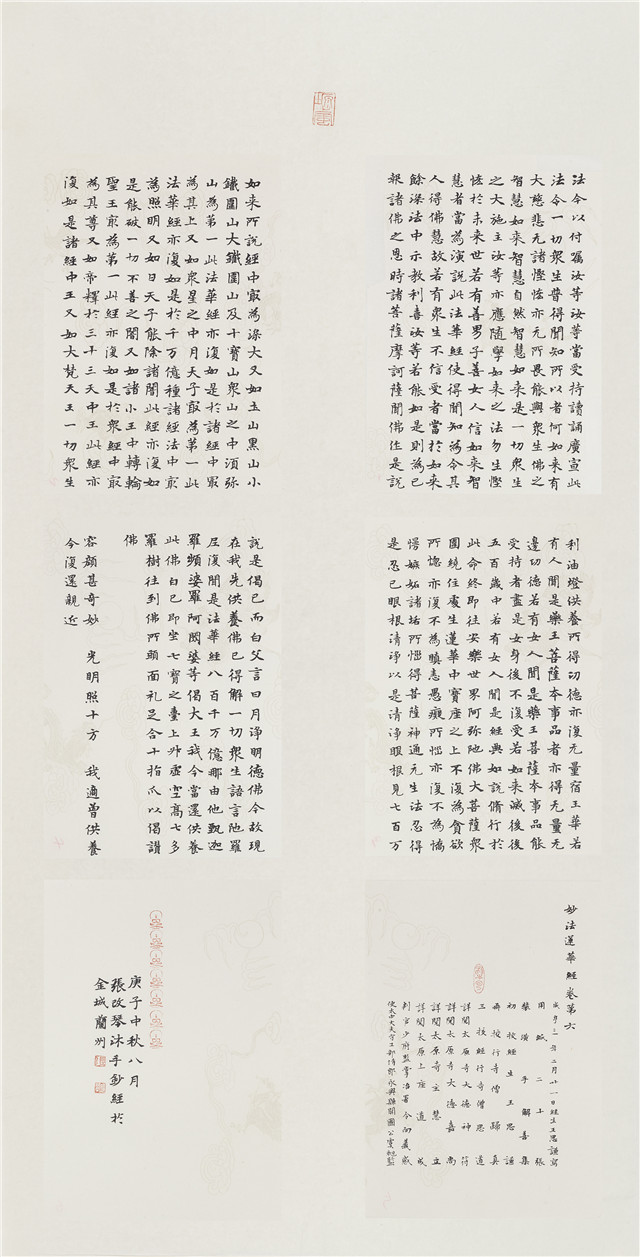 法今以付囑汝等汝等當受持讀誦廣宣此
法令一切眾生普得聞知所以者何如來有
大慈悲无諸慳悋亦无所畏能與眾生佛之
智慧如來智慧自然智慧如來是一切眾生
之大施主汝等亦應隨學如來之法勿生慳
悋於未來世若有善男子善女人信如來智
慧者當為演說此法華經使得聞知為令其
人得佛慧故若有眾生不信受者當於如來
餘深法中示教利喜汝等若能如是則為已
報諸佛之恩時諸菩薩摩訶薩聞佛作是說
如來所說經中最為深大又如土山黑山小
鐵圍山大鐵圍山及十寶山眾山之中須弥
山為第一此法華經亦復如是於諸經中最
為其上又如眾星之中月天子最為第一此
法華經亦復如是於千万億種諸經法中最
為照明又如日天子能除諸闇此經亦復如
是能破一切不善之闇又如諸小王中轉輪
聖王最為第一此經亦復如是於眾經中最
為其尊又如帝釋於三十三天中王此經亦
復如是諸經中王又如大梵天王一切眾生
利油燈供養所得功德亦復无量宿王華若
有人聞是藥王菩薩本事品者亦得无量无
邊功德若有女人聞是藥王菩薩本事品能
受持者盡是女身後不復受若如來滅後後
五百歲中若有女人聞是經典如說脩行於
此命終即往安樂世界阿弥陁佛大菩薩眾
圍繞住處生蓮華中寶座之上不復為貪欲
所惱亦復不為瞋恚愚癡所惱亦復不為憍
慢嫉妬諸垢所惱得菩薩神通无生法忍得
是忍已眼根清淨以是清淨眼根見七百万
說是偈已而白父言日月淨明德佛今故現
在我先供養佛已得解一切眾生語言陁羅
尼復聞是法華經八百千万億那由他甄迦
羅頻婆羅阿閦婆等偈大王我今當還供養
此佛白已即坐七寶之臺上升虛空高七多
羅樹往到佛所頭面礼足合十指爪以偈讚
佛
容顏甚奇妙 光明照十方 我適曾供養
今復還親近
妙法蓮華經卷第六
年二月廿一日經生王思謙寫
用紙二十張
裝潢手解善集
初校經生王思謙
再校行寺僧歸真
三校經行寺僧思道
詳閱太原寺大德神符
詳閱太原寺大德嘉尚
詳閱太原寺主慧立
詳閱太原上座道成
判官少府監掌冶署令向義感
使太中大夫守工部侍郎永興縣開國公虞昶監
庚子中秋八月
張改琴沐手鈔經於
金城蘭州